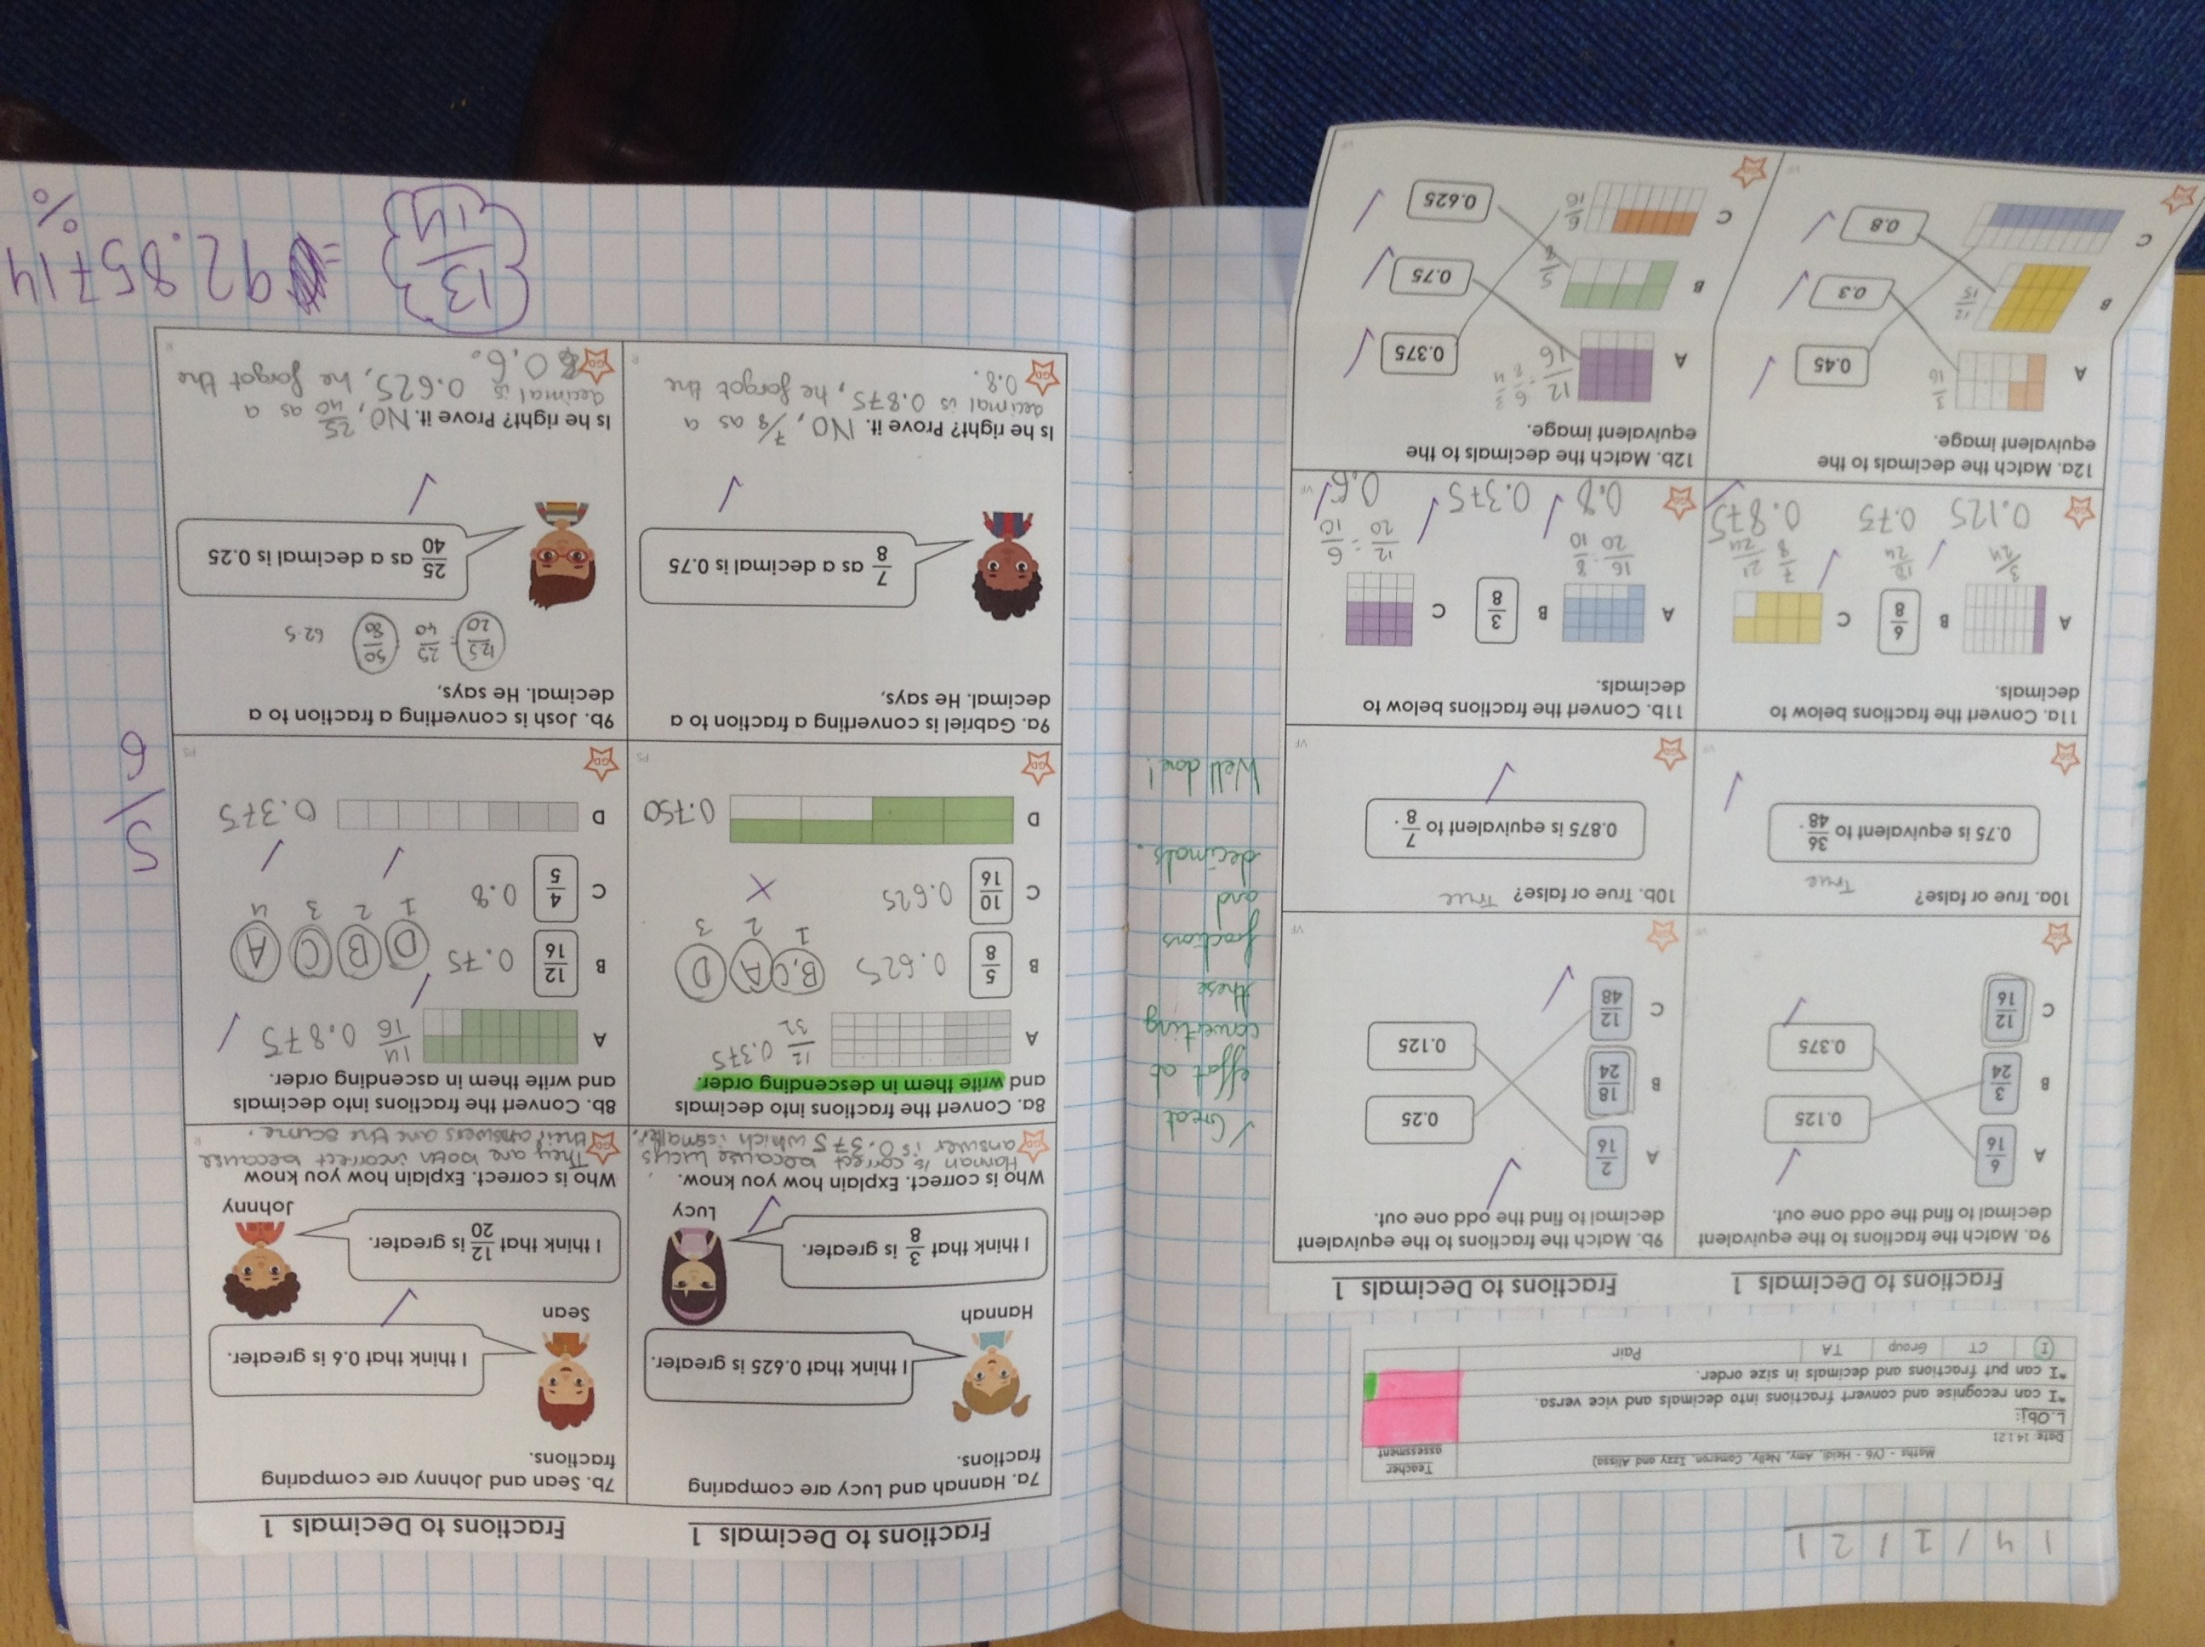 14/1/21
Maths - (Y6 - Heidi, Amy, Nelly, Cameron, Izzy and Alissa)
Teacher assessment
Date: 14.1.21
L.Obj:
*I can recognise and convert fractions into decimals and vice versa.
*I can put fractions and decimals in size order.
I CT Group TA Pair
Fractions to Decimals 1
Fractions to Decimals 1
9a. Match the fractions to the equivalent
decimal to find the odd one out.
A 6/16 0.125
B 3/24
C 12/16 0.375
9b. Match the fractions to the equivalent
decimal to find the odd one out.
A 2/16 0.25
B 18/24
C 12/48 0.125
10a. True or false? True
0.75 is equivalent to 36/48.
10b. True or false? True
0.875 is equivalent to 7/8.
11a. Convert the fractions below to
decimals.
A B 6/8 C
3/24 18/24 21/24 7/8
0.125 0.75 0.875
11b. Convert the fractions below to
decimals.
A B 3/8 C
16/20 = 8/10 12/20 = 6/10
0.8 0.375 0.6
12a. Match the decimals to the
equivalent image.
A 0.45
B 12/15 0.3
C 0.8
12b. Match the decimals to the
equivalent image.
A 12/16 6/8 3/4 0.375
B 5/8 0.75
C 6/16 0.625
GD
VF
✓ Great
effort at
converting
these
fractions
and
decimals.
Well done!
Fractions to Decimals 1
Fractions to Decimals 1
7a. Hannah and Lucy are comparing
fractions.
I think that 0.625 is greater.
Hannah
I think that 3/8 is greater.
Lucy
Who is correct. Explain how you know.
Hannah is correct because Lucys
answer is 0.375 which is smaller.
7b. Sean and Johnny are comparing
fractions.
I think that 0.6 is greater.
Sean
I think that 12/20 is greater.
Johnny
Who is correct. Explain how you know
They are both incorrect because
their answers are the same.
8a. Convert the fractions into decimals
and write them in descending order.
A 12/32 0.375
B 5/8 0.625
B,C A D
1 2 3
C 10/16 0.625
D 0.750
8b. Convert the fractions into decimals
and write them in ascending order.
A 14/16 0.875
B 12/16 0.75
D B C A
1 2 3 4
C 4/5 0.8
D 0.375
5/6
9a. Gabriel is converting a fraction to a
decimal. He says,
7/8 as a decimal is 0.75
Is he right? Prove it. NO, 7/8 as a
decimal is 0.875, he forgot the
0.8.
9b. Josh is converting a fraction to a
decimal. He says,
12.5/20 = 25/40 50/80 62.5
25/40 as a decimal is 0.25
Is he right? Prove it. NO, 25/40 as a
decimal is 0.625, he forgot the
0.6.
13/14 = 92.85714
%